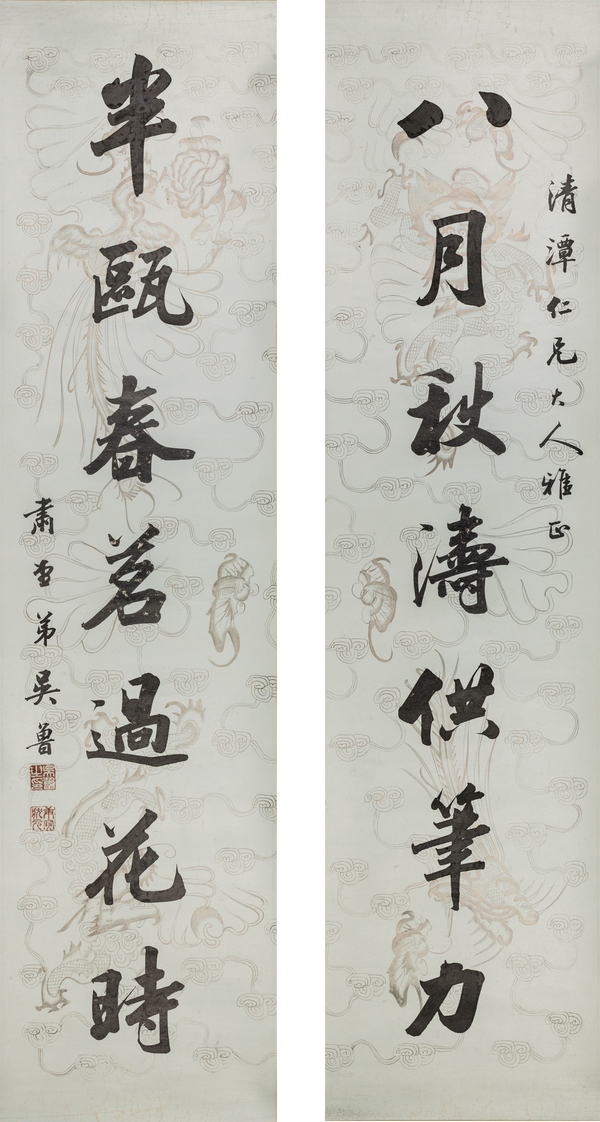 清潭仁兄大人雅正
八月秋濤供筆力
半甌春茗過花時
肅堂弟吳魯
吳魯之印